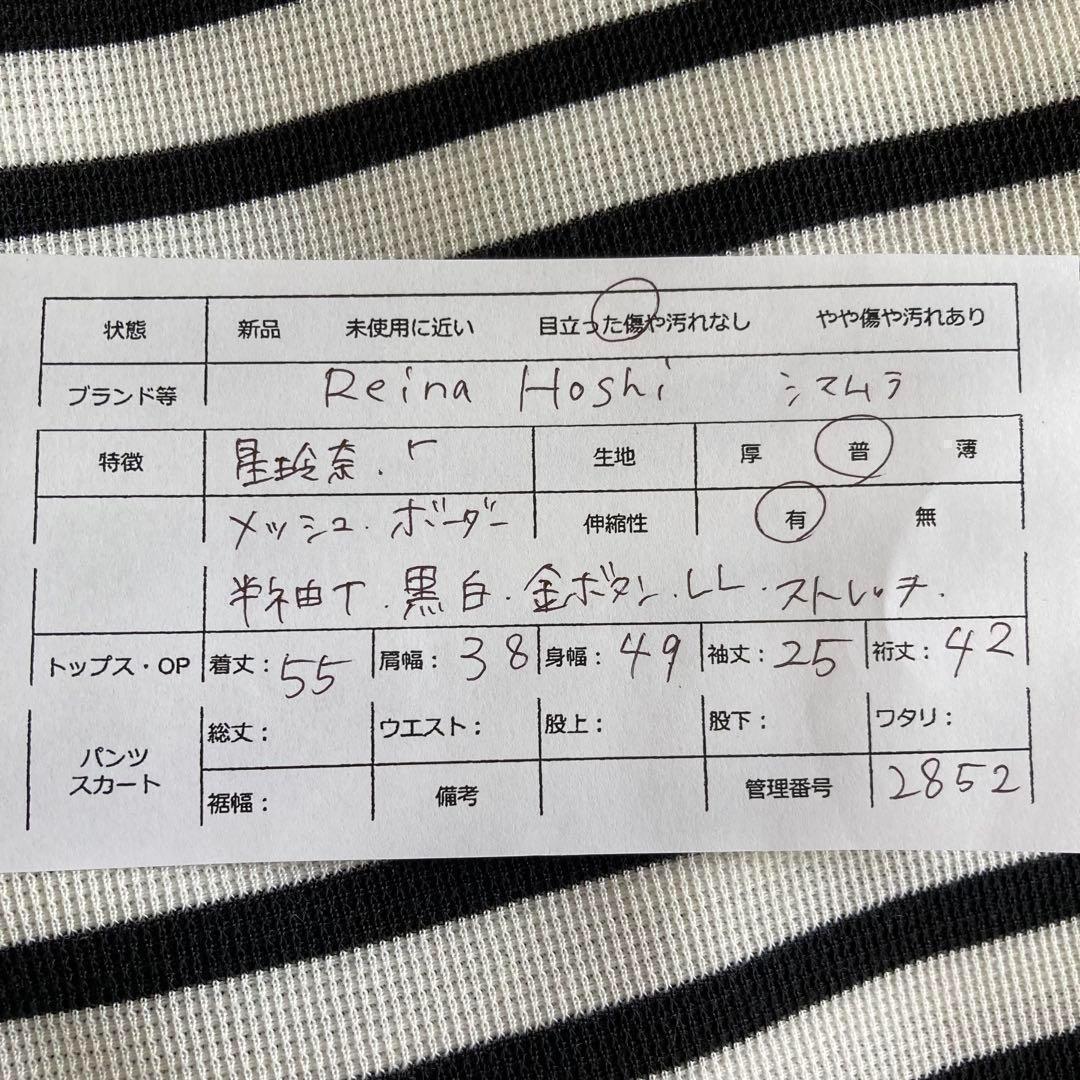 状態 新品 未使用に近い 目立った傷や汚れなし やや傷や汚れあり
ブランド等 Reina Hoshi シマムラ
特徴 星玲奈. 生地 厚 普 薄
メッシュ. ボーダー 伸縮性 有 無
半袖T. 黒白. 金ボタン. LL. ストレッチ.
トップス・OP 着丈：55 肩幅：38 身幅：49 袖丈：25 裄丈：42
パンツ スカート 総丈： ウエスト： 股上： 股下： ワタリ：
裾幅： 備考 管理番号 2852